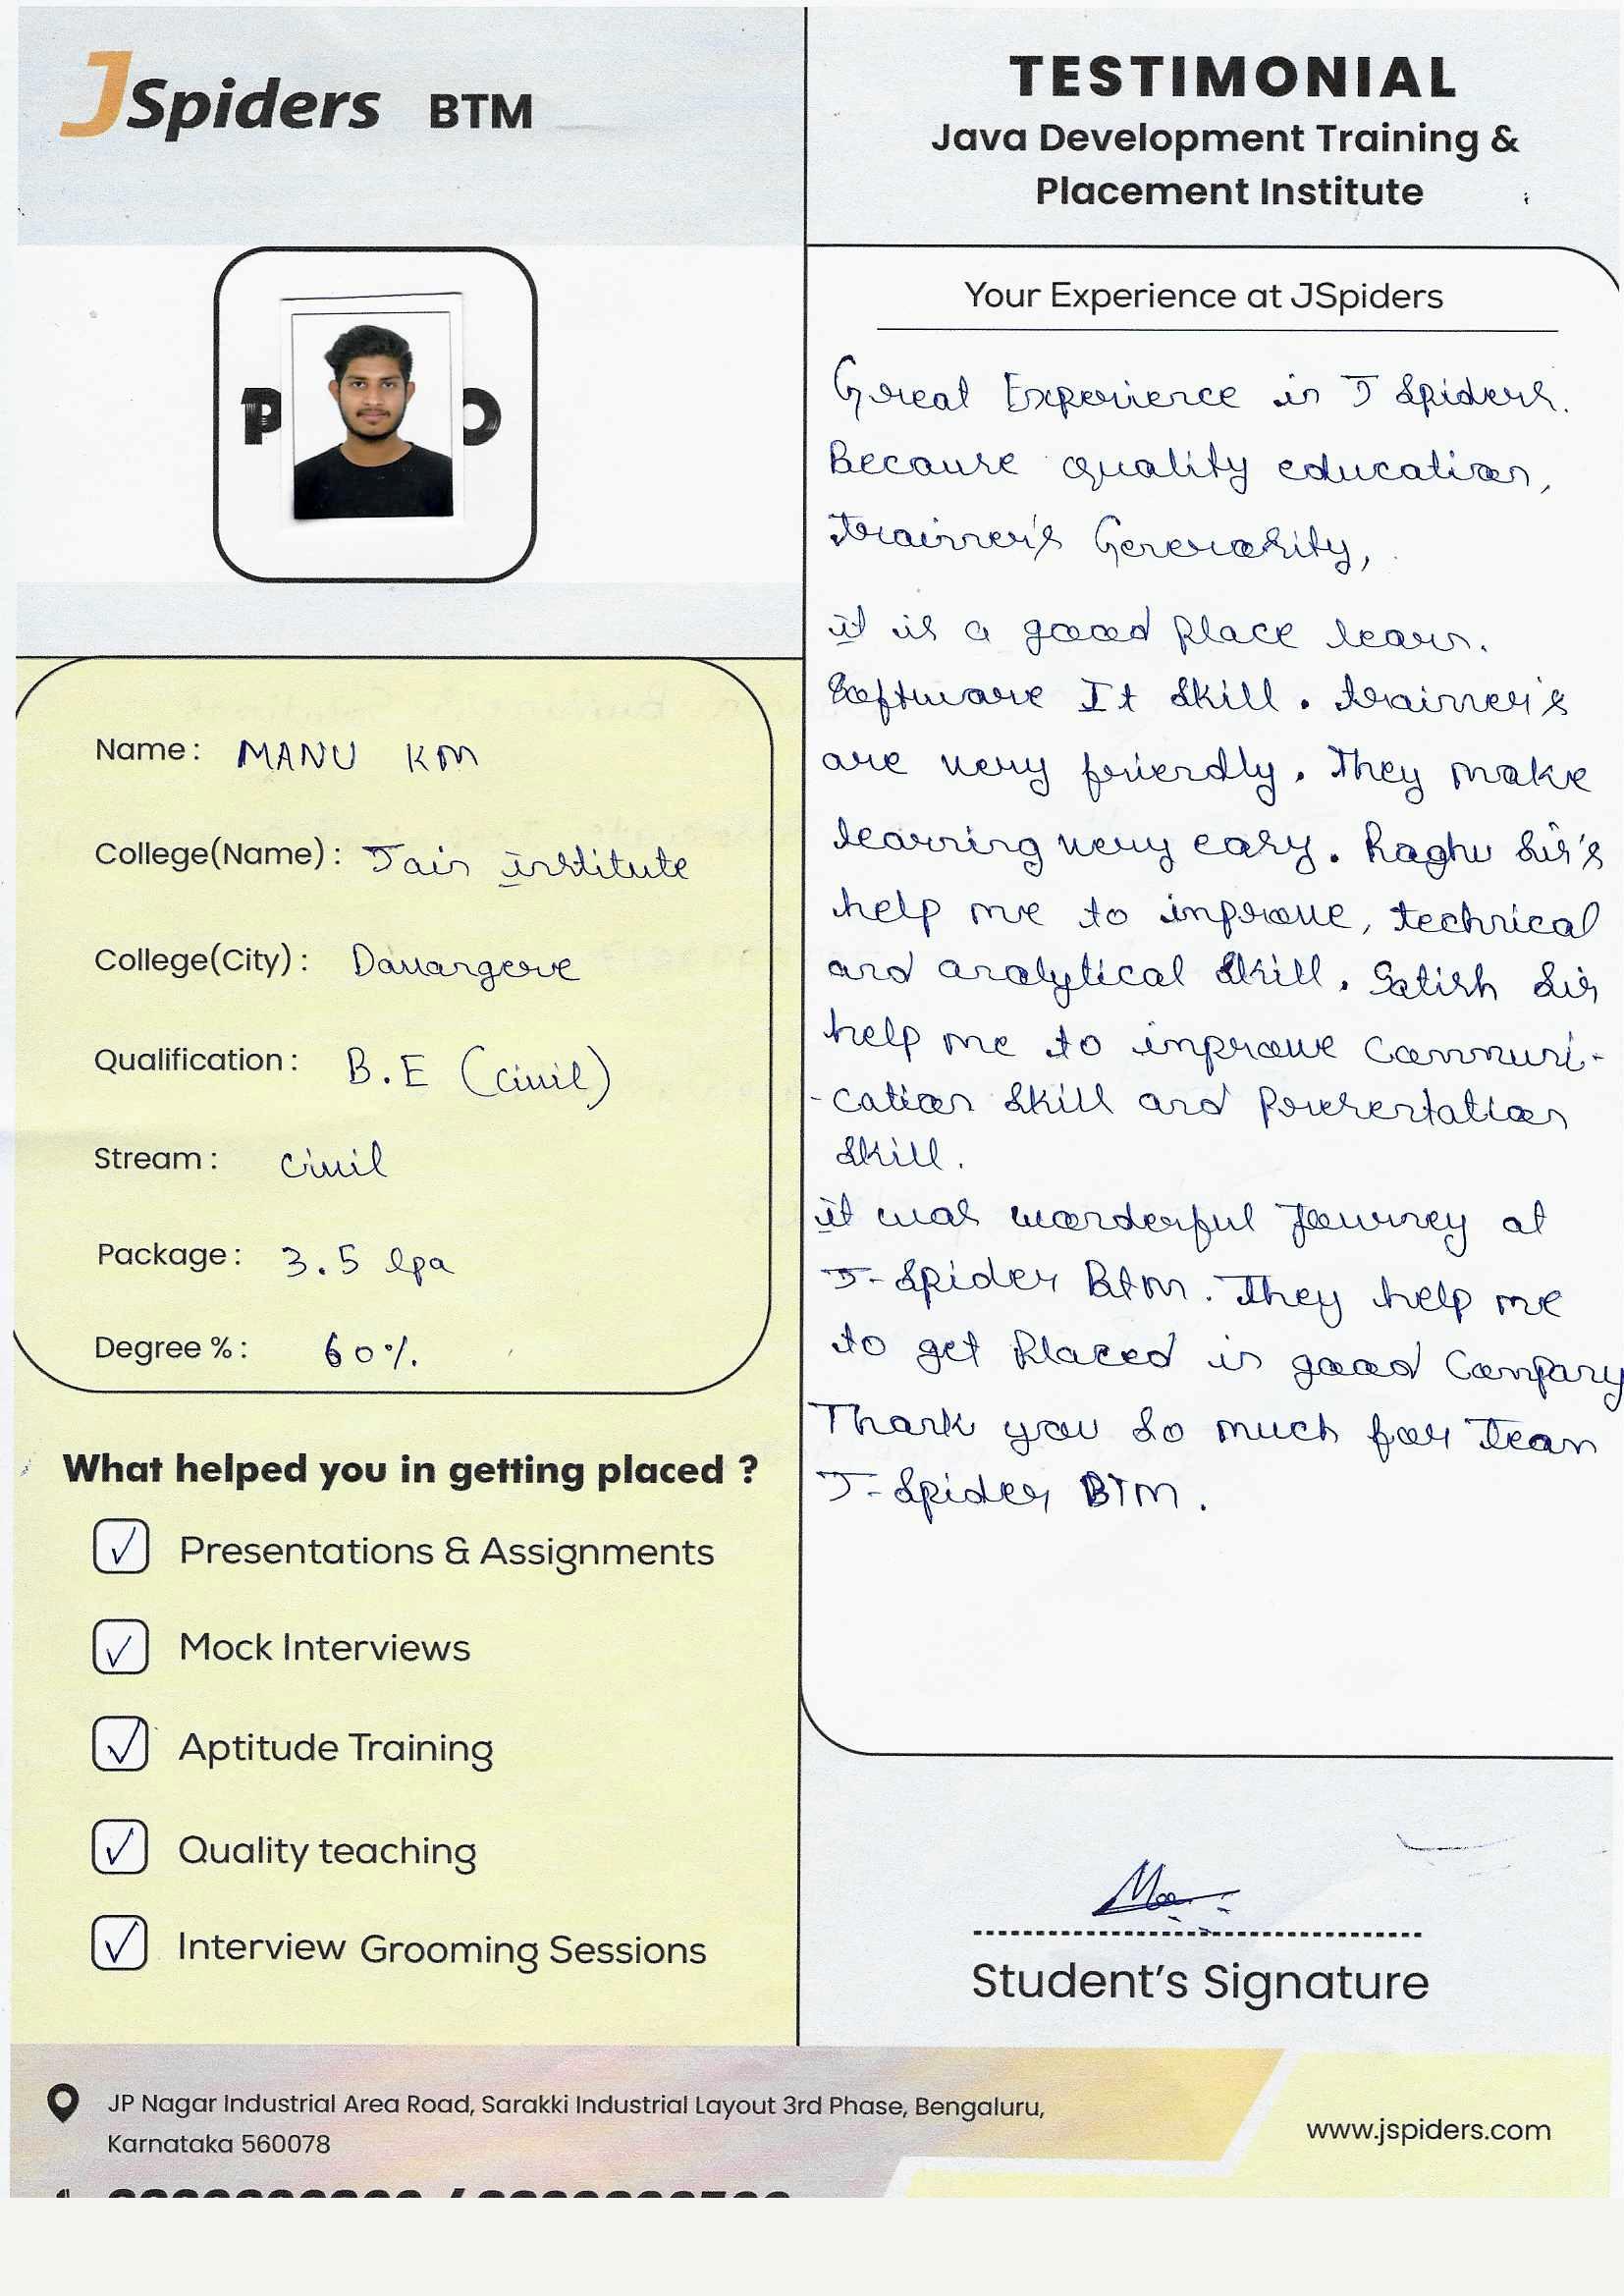 JSpiders BTM
TESTIMONIAL
Java Development Training &
Placement Institute
P O
Name : MANU KM
College(Name) : Jain institute
College(City) : Davangere
Qualification : B.E (civil)
Stream : civil
Package : 3.5 lpa
Degree % : 60%
What helped you in getting placed ?
✓ Presentations & Assignments
✓ Mock Interviews
✓ Aptitude Training
✓ Quality teaching
✓ Interview Grooming Sessions
Your Experience at JSpiders
Great Experience in J Spiders.
Because quality education,
trainner's Generosity,
it is a good place learn.
Software It skill. trainner's
are very friendly. They make
learning very easy. Raghu Sir's
help me to improve, technical
and analytical skill. Satish Sir
help me to improve Communi-
-cation skill and Presentation
skill.
it was wonderful Journey at
J-Spider Btm. They help me
to get Placed in good Company
Thank you so much for Team
J-Spider BTM.
Student's Signature
JP Nagar Industrial Area Road, Sarakki Industrial Layout 3rd Phase, Bengaluru,
Karnataka 560078
www.jspiders.com